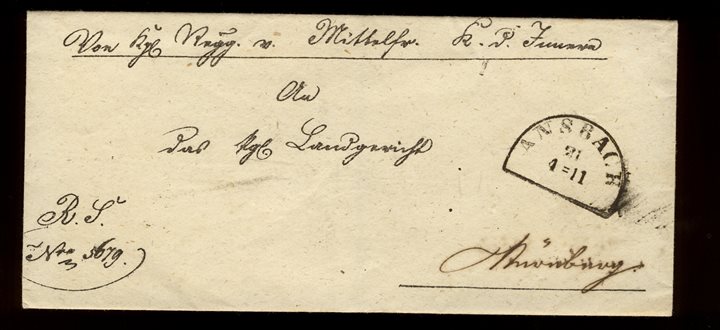 Von Kgl Regg. v. Mittelfr. K. d. Innern
An
das Kgl Landgericht
ANSBACH
21
4 = 11
R. S.
Nro 5679.
Nürnberg.